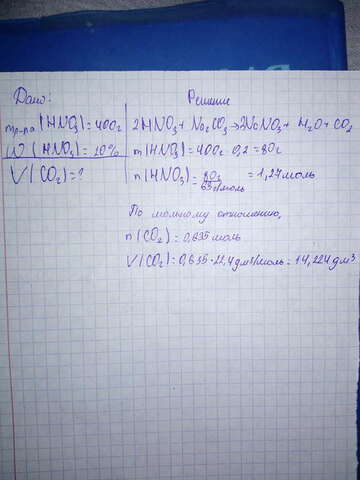 Дано:
mр-ра(HNO3)=400г
W(HNO3)=20%
V(CO2)=?
Решение
2HNO3+Na2CO3→2NaNO3+H2O+CO2
m(HNO3)=400г·0,2=80г
n(HNO3)=80г/63г/моль=1,27моль
По мольному отношению,
n(CO2)=0,635моль
V(CO2)=0,635·22,4дм3/моль=14,224дм3